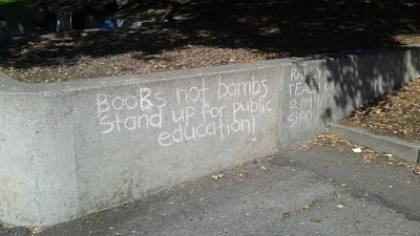 BooBs not bombs
Stand up for public
education!
12 PM